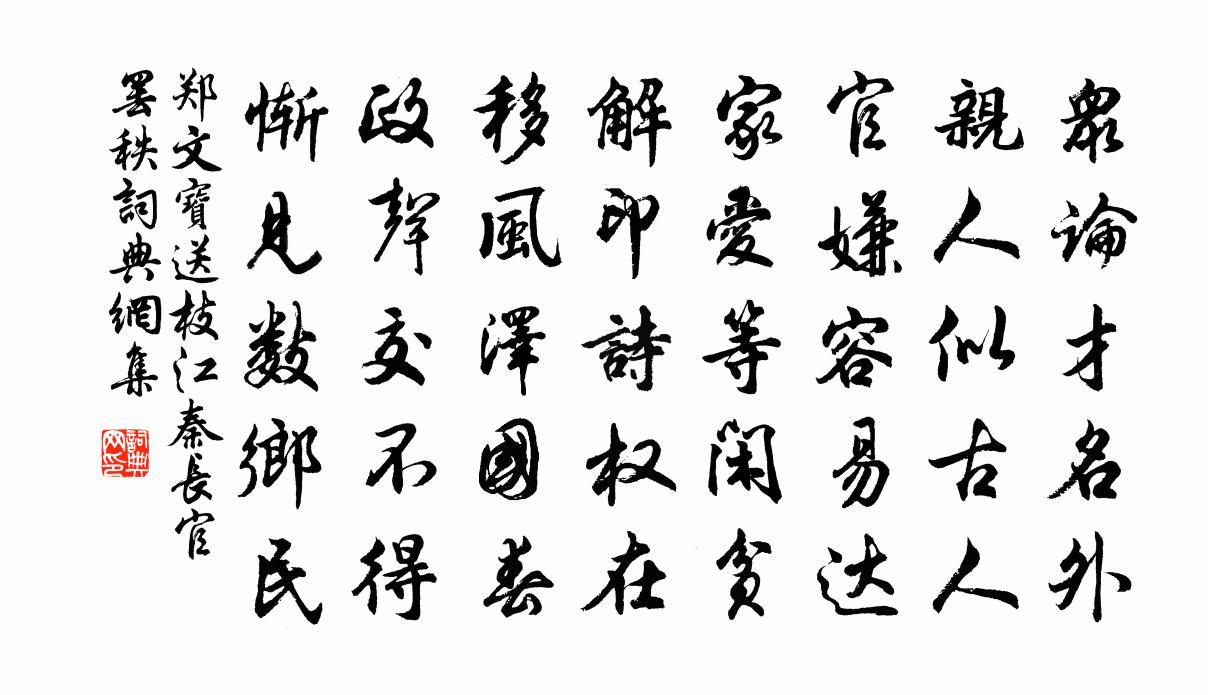 眾論才名外
親人似古人
官嫌容易达
家愛等閑貧
解印詩权在
移風澤國春
政聲交不得
惭見數鄉民
郑文寶送枝江秦長官
罢秩詞典網集
詞典网印